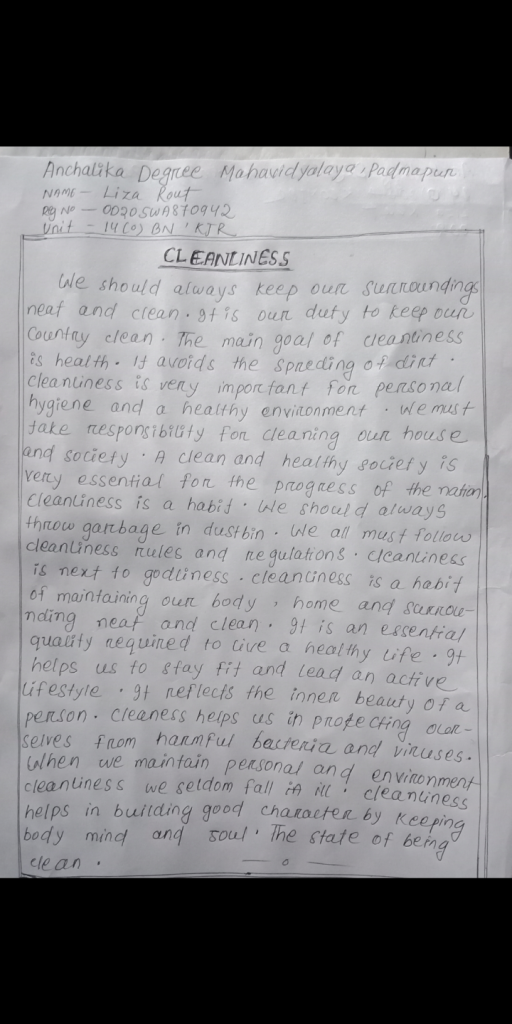 Anchalika Degree Mahavidyalaya, Padmapur
NAME - Liza Rout
Reg No - OD20SWA870942
Unit - 14(O) BN, KJR
CLEANLINESS
We should always keep our surroundings
neat and clean. It is our duty to keep our
Country clean. The main goal of cleanliness
is health. It avoids the spreding of dirt.
cleanliness is very important for personal
hygiene and a healthy environment. We must
take responsibility for cleaning our house
and society. A clean and healthy society is
very essential for the progress of the nation.
Cleanliness is a habit. We should always
throw garbage in dustbin. We all must follow
cleanliness rules and regulations. Cleanliness
is next to godliness. cleanliness is a habit
of maintaining our body, home and surrou-
nding neat and clean. It is an essential
quality required to live a healthy life. It
helps us to stay fit and lead an active
lifestyle. It reflects the inner beauty of a
person. Cleaness helps us in protecting our-
selves from harmful bacteria and viruses.
When we maintain personal and environment
cleanliness we seldom fall ill. cleanliness
helps in building good character by keeping
body mind and soul. The state of being
clean.